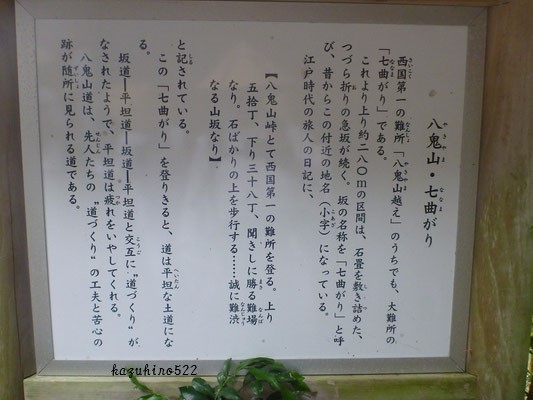 八鬼山・七曲がり
西国第一の難所「八鬼山越え」のうちでも、大難所の
「七曲がり」である。
これより上り約二八〇mの区間は、石畳を敷き詰めた、
つづら折りの急坂が続く。坂の名称を「七曲がり」と呼
び、昔からこの付近の地名（小字）になっている。
江戸時代の旅人の日記に、
【八鬼山峠とて西国第一の難所を登る。上り
五拾丁、下り三十八丁、聞きしに勝る難場
なり。石ばかりの上を歩行する……誠に難渋
なる山坂なり】
と記されている。
この「七曲がり」を登りきると、道は平坦な土道にな
る。
坂道―平坦道―坂道―平坦道と交互に〝道づくり〟が
なされたようで、平坦道は疲れをいやしてくれる。
八鬼山道は、先人たちの〝道づくり〟の工夫と苦心の
跡が随所に見られる道である。
kazuhiro522